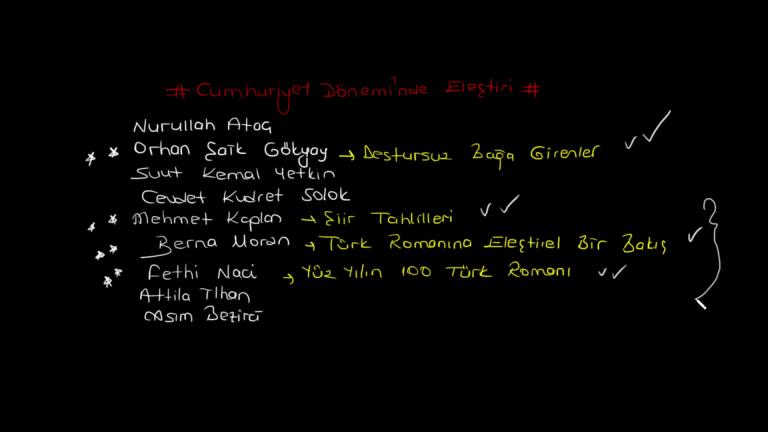 # Cumhuriyet Dönemi'nde Eleştiri #
Nurullah Ataç
** Orhan Şaik Gökyay → Destursuz Bağa Girenler
Suut Kemal Yetkin
Cevdet Kudret Solok
** Mehmet Kaplan → Şiir Tahlilleri
** Berna Moran → Türk Romanına Eleştirel Bir Bakış
** Fethi Naci → Yüz Yılın 100 Türk Romanı
Attila İlhan
Asım Bezirci